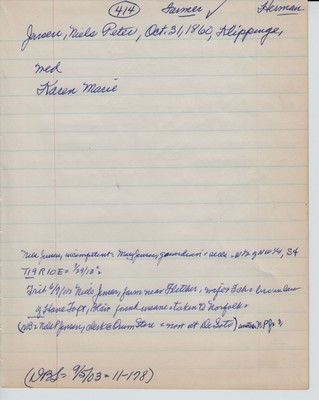 414 Farmer ✓ Herman
Jensen, Niels Peter, Oct. 31, 1860, Klippinge,
wed
Karen Marie
Niels Jensen, incompetent = Mary Jensen, guardian = sells N½ of NW¼, S4
T19 R10E =
Trib Niels Jensen, farm near Fletcher, wife =
of Hans Toft, Blair, freak insane = taken to Norfolk =
(NB = Niels P Jensen, Clerk @ Drum Store = not at De Soto)
(NBS = 9/5/03 = 11-178)